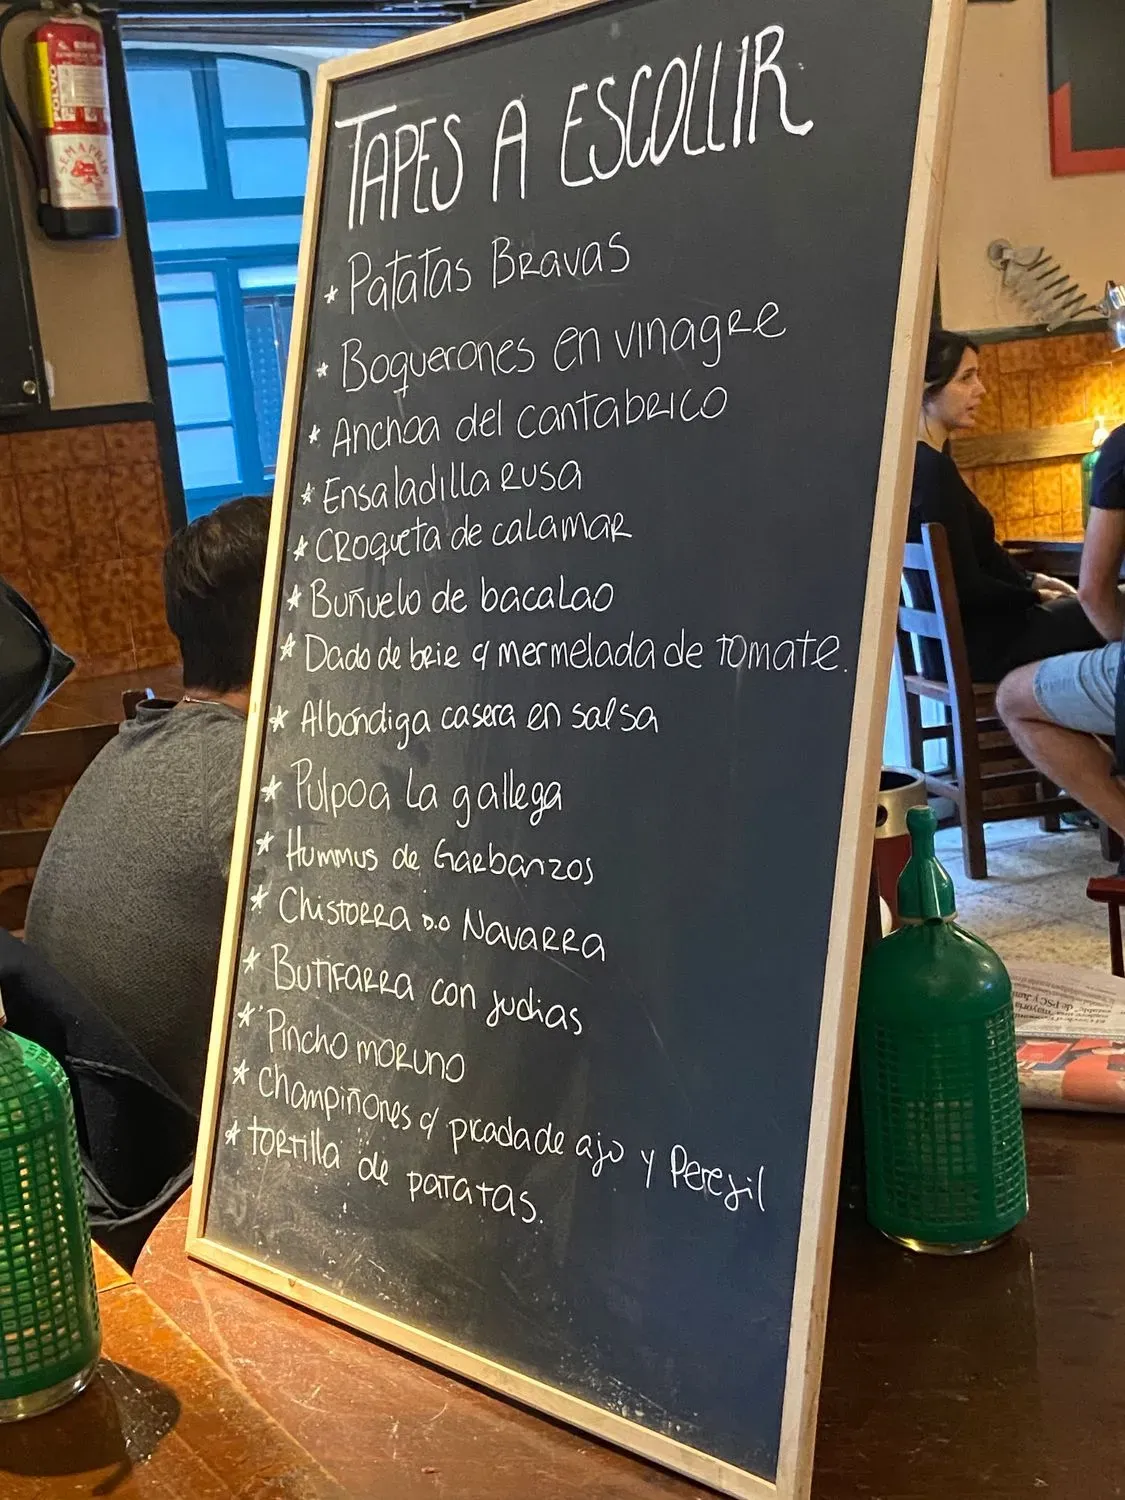 TAPES A ESCOLLIR
* Patatas Bravas
* Boquerones en vinagre
* Anchoa del cantabrico
* Ensaladilla Rusa
* Croqueta de calamar
* Buñuelo de bacalao
* Dado de brie c/ mermelada de tomate.
* Albóndiga casera en salsa
* Pulpo a la gallega
* Hummus de Garbanzos
* Chistorra D.O Navarra
* Butifarra con judias
* Pincho moruno
* Champiñones c/ picada de ajo y Perejil
* Tortilla de patatas.
POLVO
SEMAPRIN